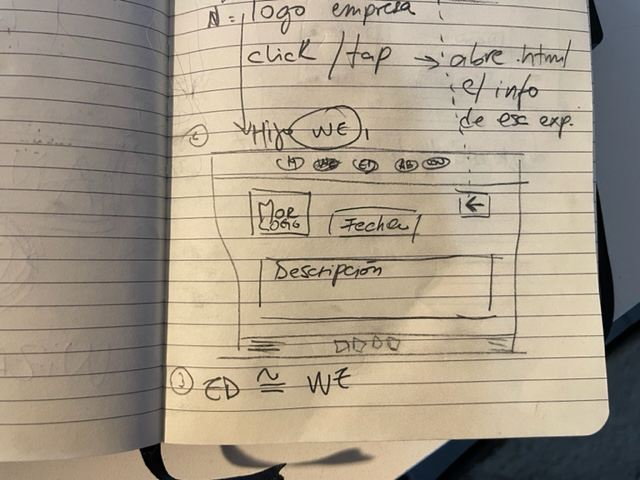 N = logo empresa
click / tap → abre .html
c/ info
de esc exp.
② Hijo WE 1
H WE ED AB CON
MOR LOGO
Fecha
←
Descripción
③ ED ≅ WE